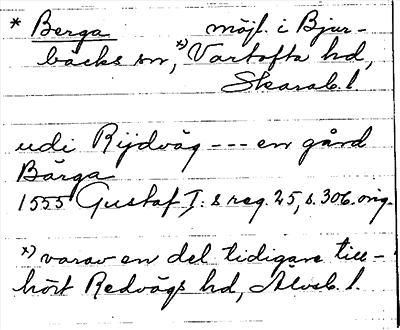 * Berga möjl. i Bjur-
bäcks sn, *) Vartofta hd,
Skarab. l
udi Rijdväg --- en gård
Bärga
1555 Gustaf I:s reg. 25, s. 306. orig.
*) varav en del tidigare till-
hört Redvägs hd, Älvsb. l.